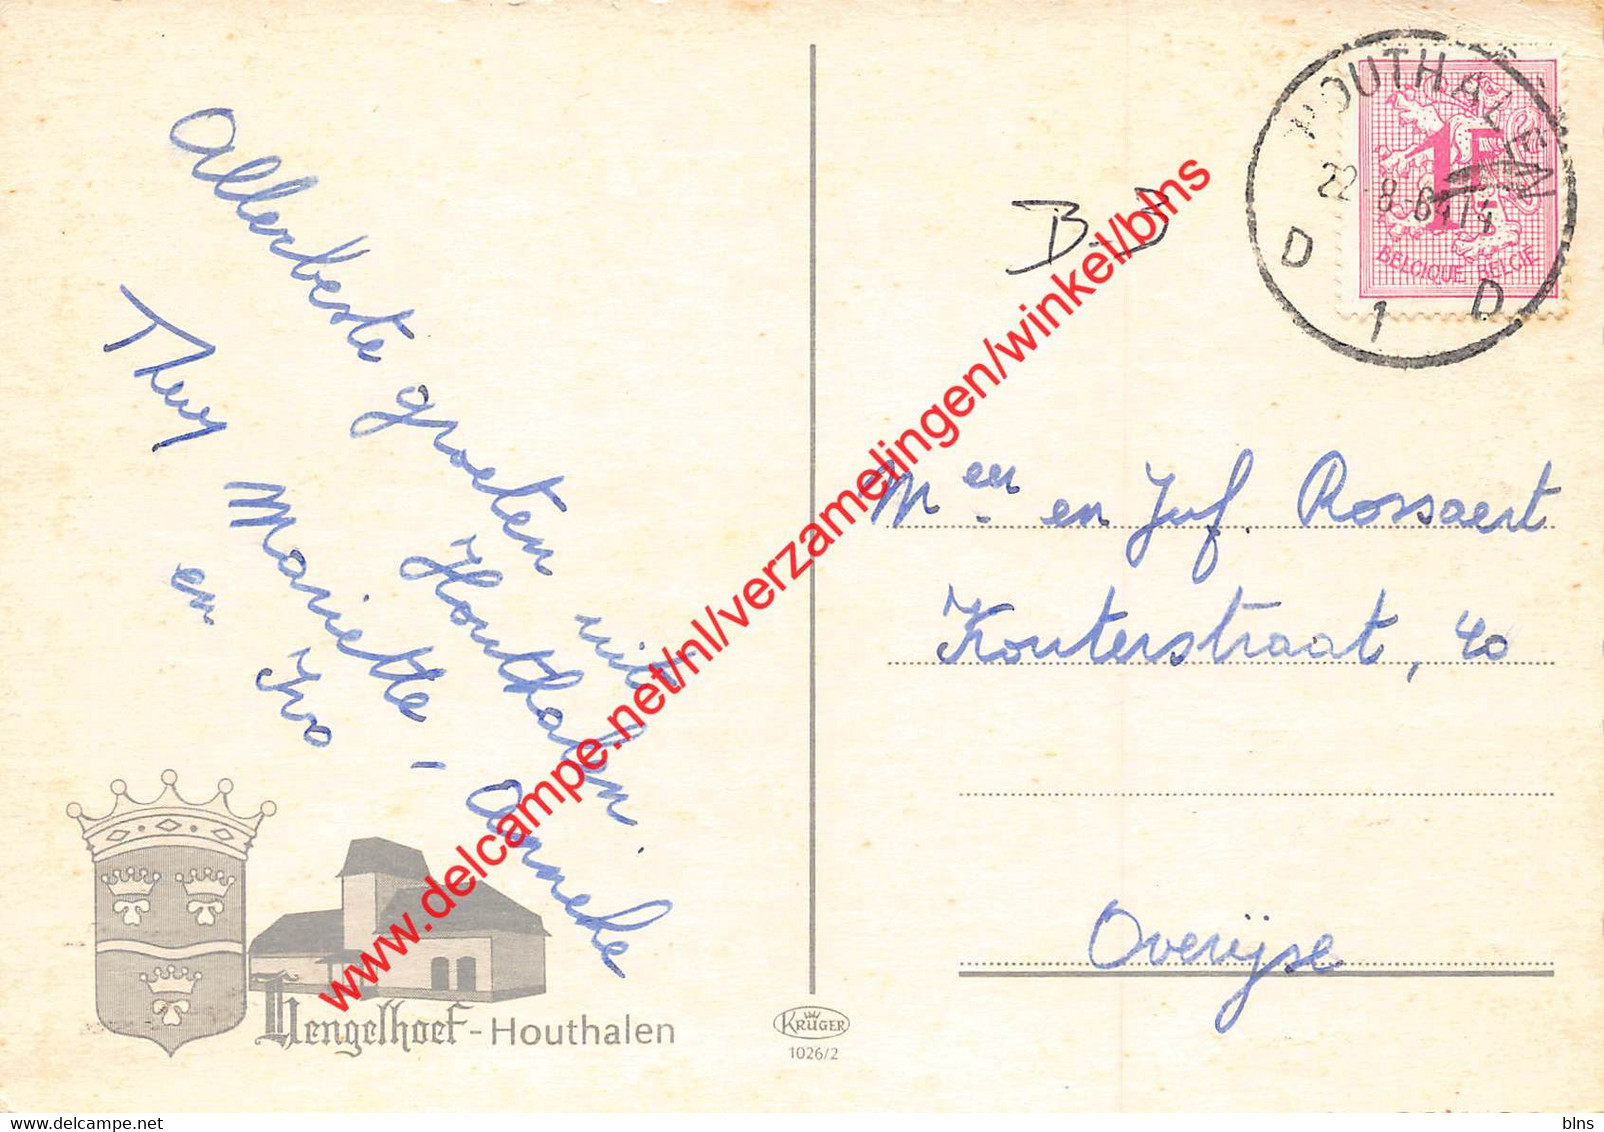 Allerbeste groeten uit
Houthalen
Theuy Mariette - Anneke
en Ivo
Hengelhoef - Houthalen
KRÜGER
1026/2
B.D
HOUTHALEN
22-8-64 14
D 1 D
1F
BELGIQUE BELGIË
Mer en Juf. Rossaert
Kouterstraat, 40
Overijse
www.delcampe.net/nl/verzamelingen/winkel/blns
blns